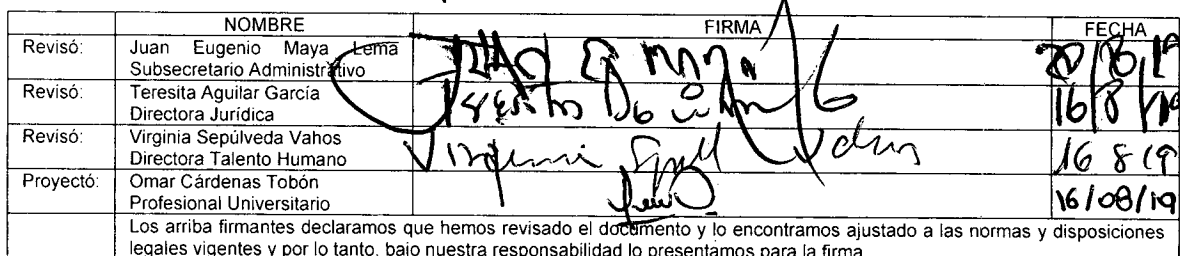 NOMBRE FIRMA FECHA
Revisó: Juan Eugenio Maya Lema
Subsecretario Administrativo
Revisó: Teresita Aguilar García 16/8/19
Directora Jurídica
Revisó: Virginia Sepúlveda Vahos
Directora Talento Humano 16 8 19
Proyectó: Omar Cárdenas Tobón
Profesional Universitario 16/08/19
Los arriba firmantes declaramos que hemos revisado el documento y lo encontramos ajustado a las normas y disposiciones
legales vigentes y por lo tanto, bajo nuestra responsabilidad lo presentamos para la firma